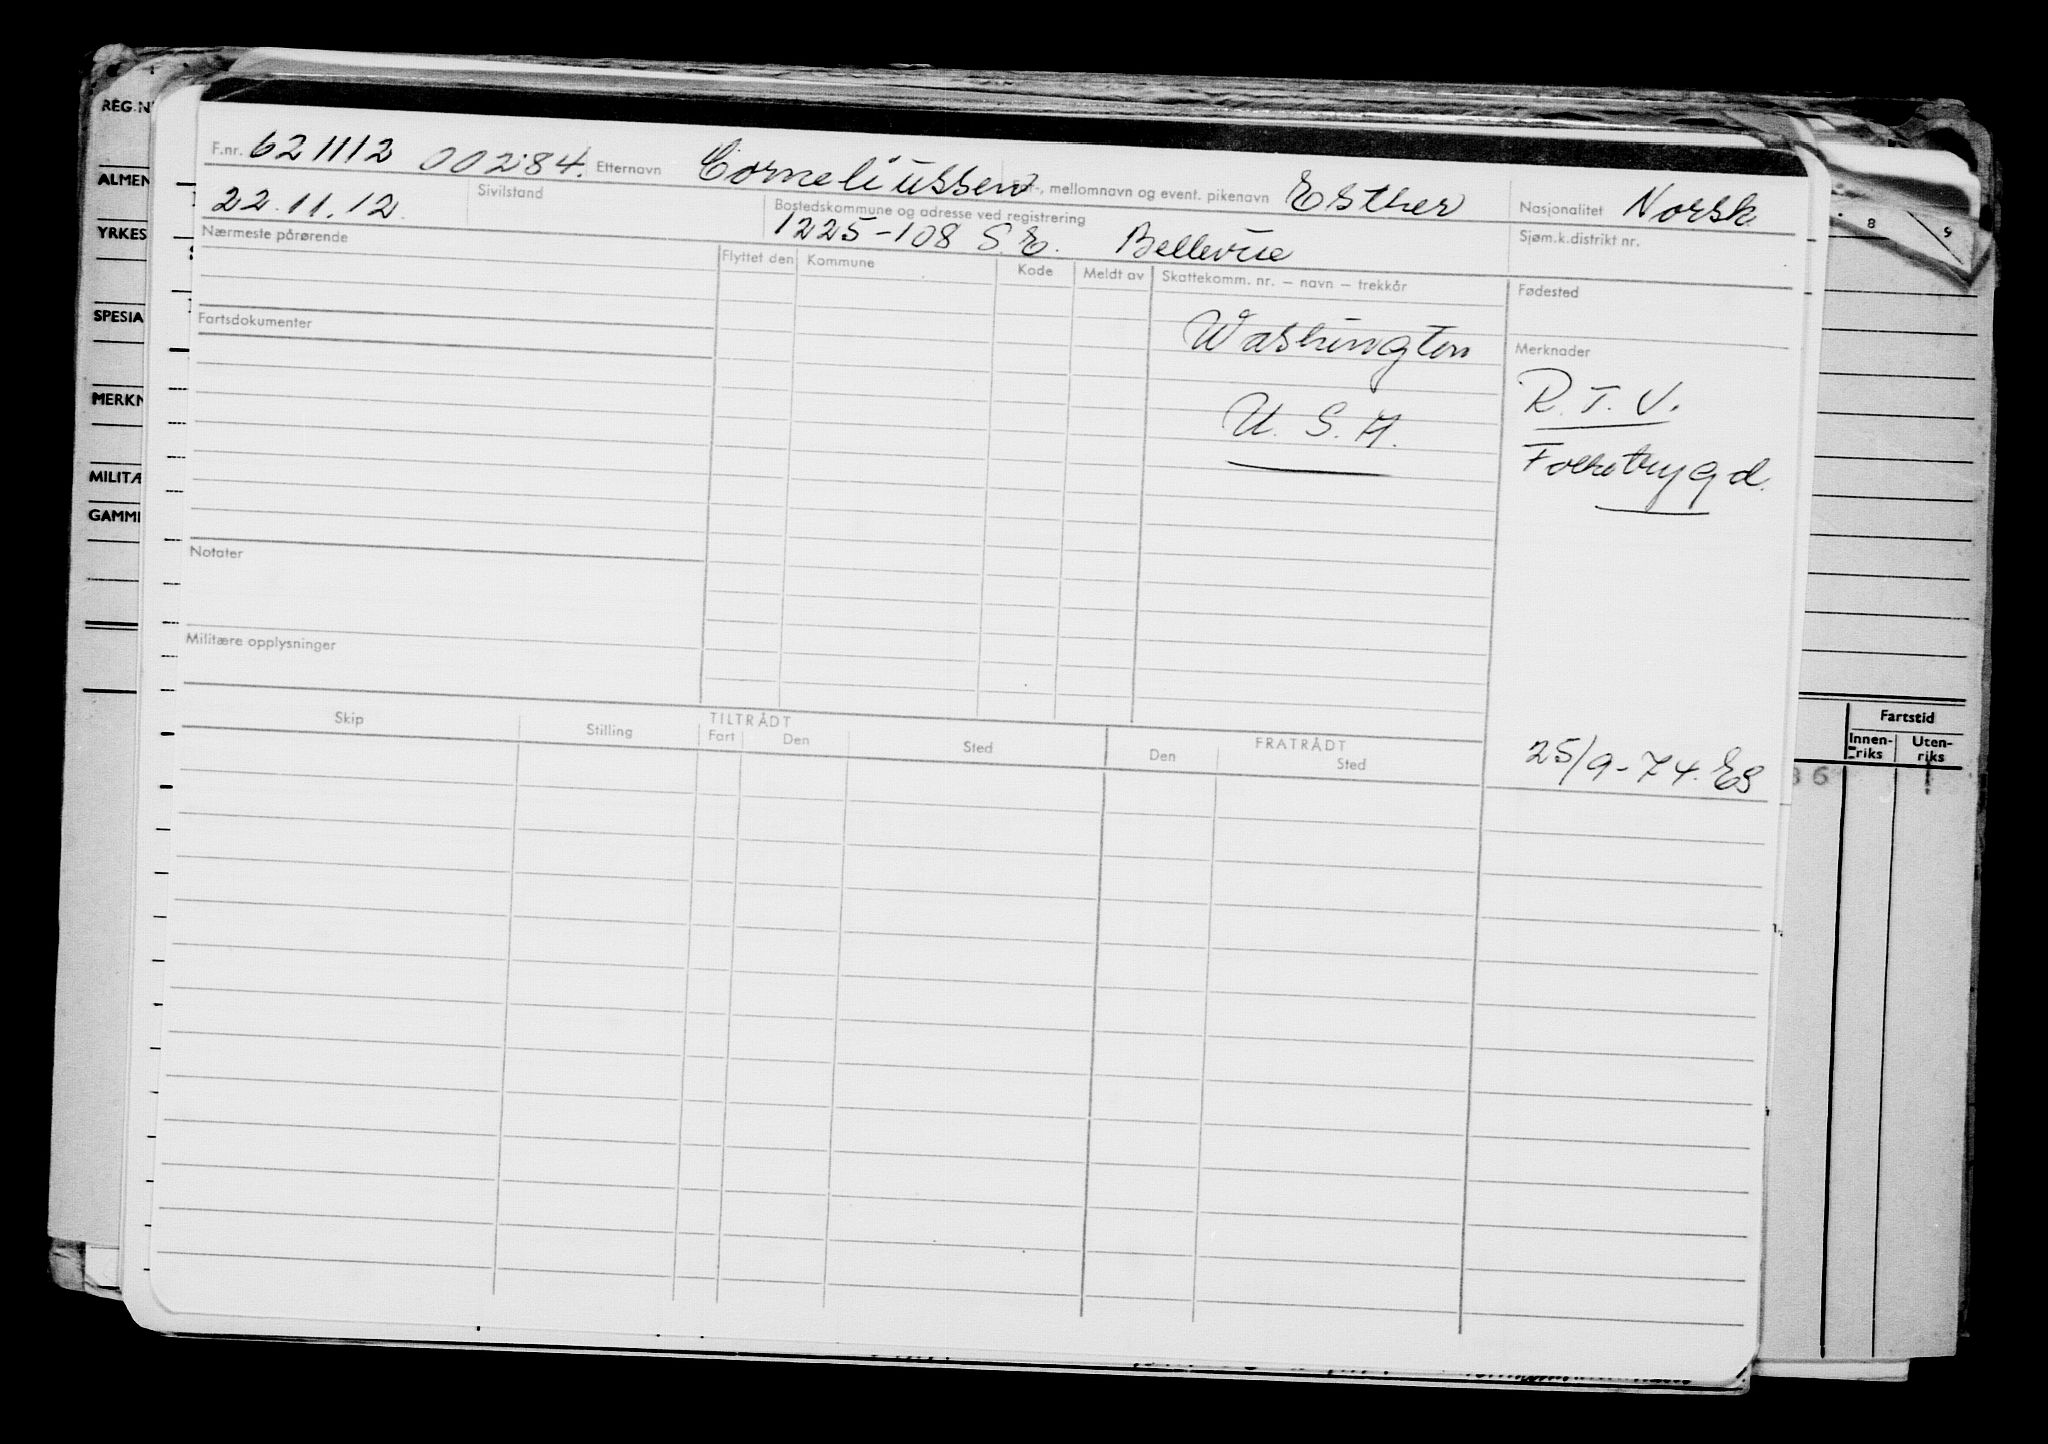 REG.N
ALMEN
YRKES
SPESIA
MERKN
MILITÆ
GAMM
F.nr. 621112 00284. Etternavn Corneliussen For-, mellomnavn og event. pikenavn Esther Nasjonalitet Norsk
22.11.12. Sivilstand Bostedskommune og adresse ved registrering Sjøm.k.distrikt nr.
1225-108 S.E. Bellevue
Nærmeste pårørende Flyttet den Kommune Kode Meldt av Skattekomm. nr. – navn – trekkår Fødested
Fartsdokumenter Washington Merknader
U. S. A. R. T. V.
Folketrygd.
Notater
Militære opplysninger
Skip Stilling TILTRÅDT Fart Den Sted FRATRÅDT Den Sted
25/9-74. ES
8 9
Fartstid
Innen-riks Uten-riks
36